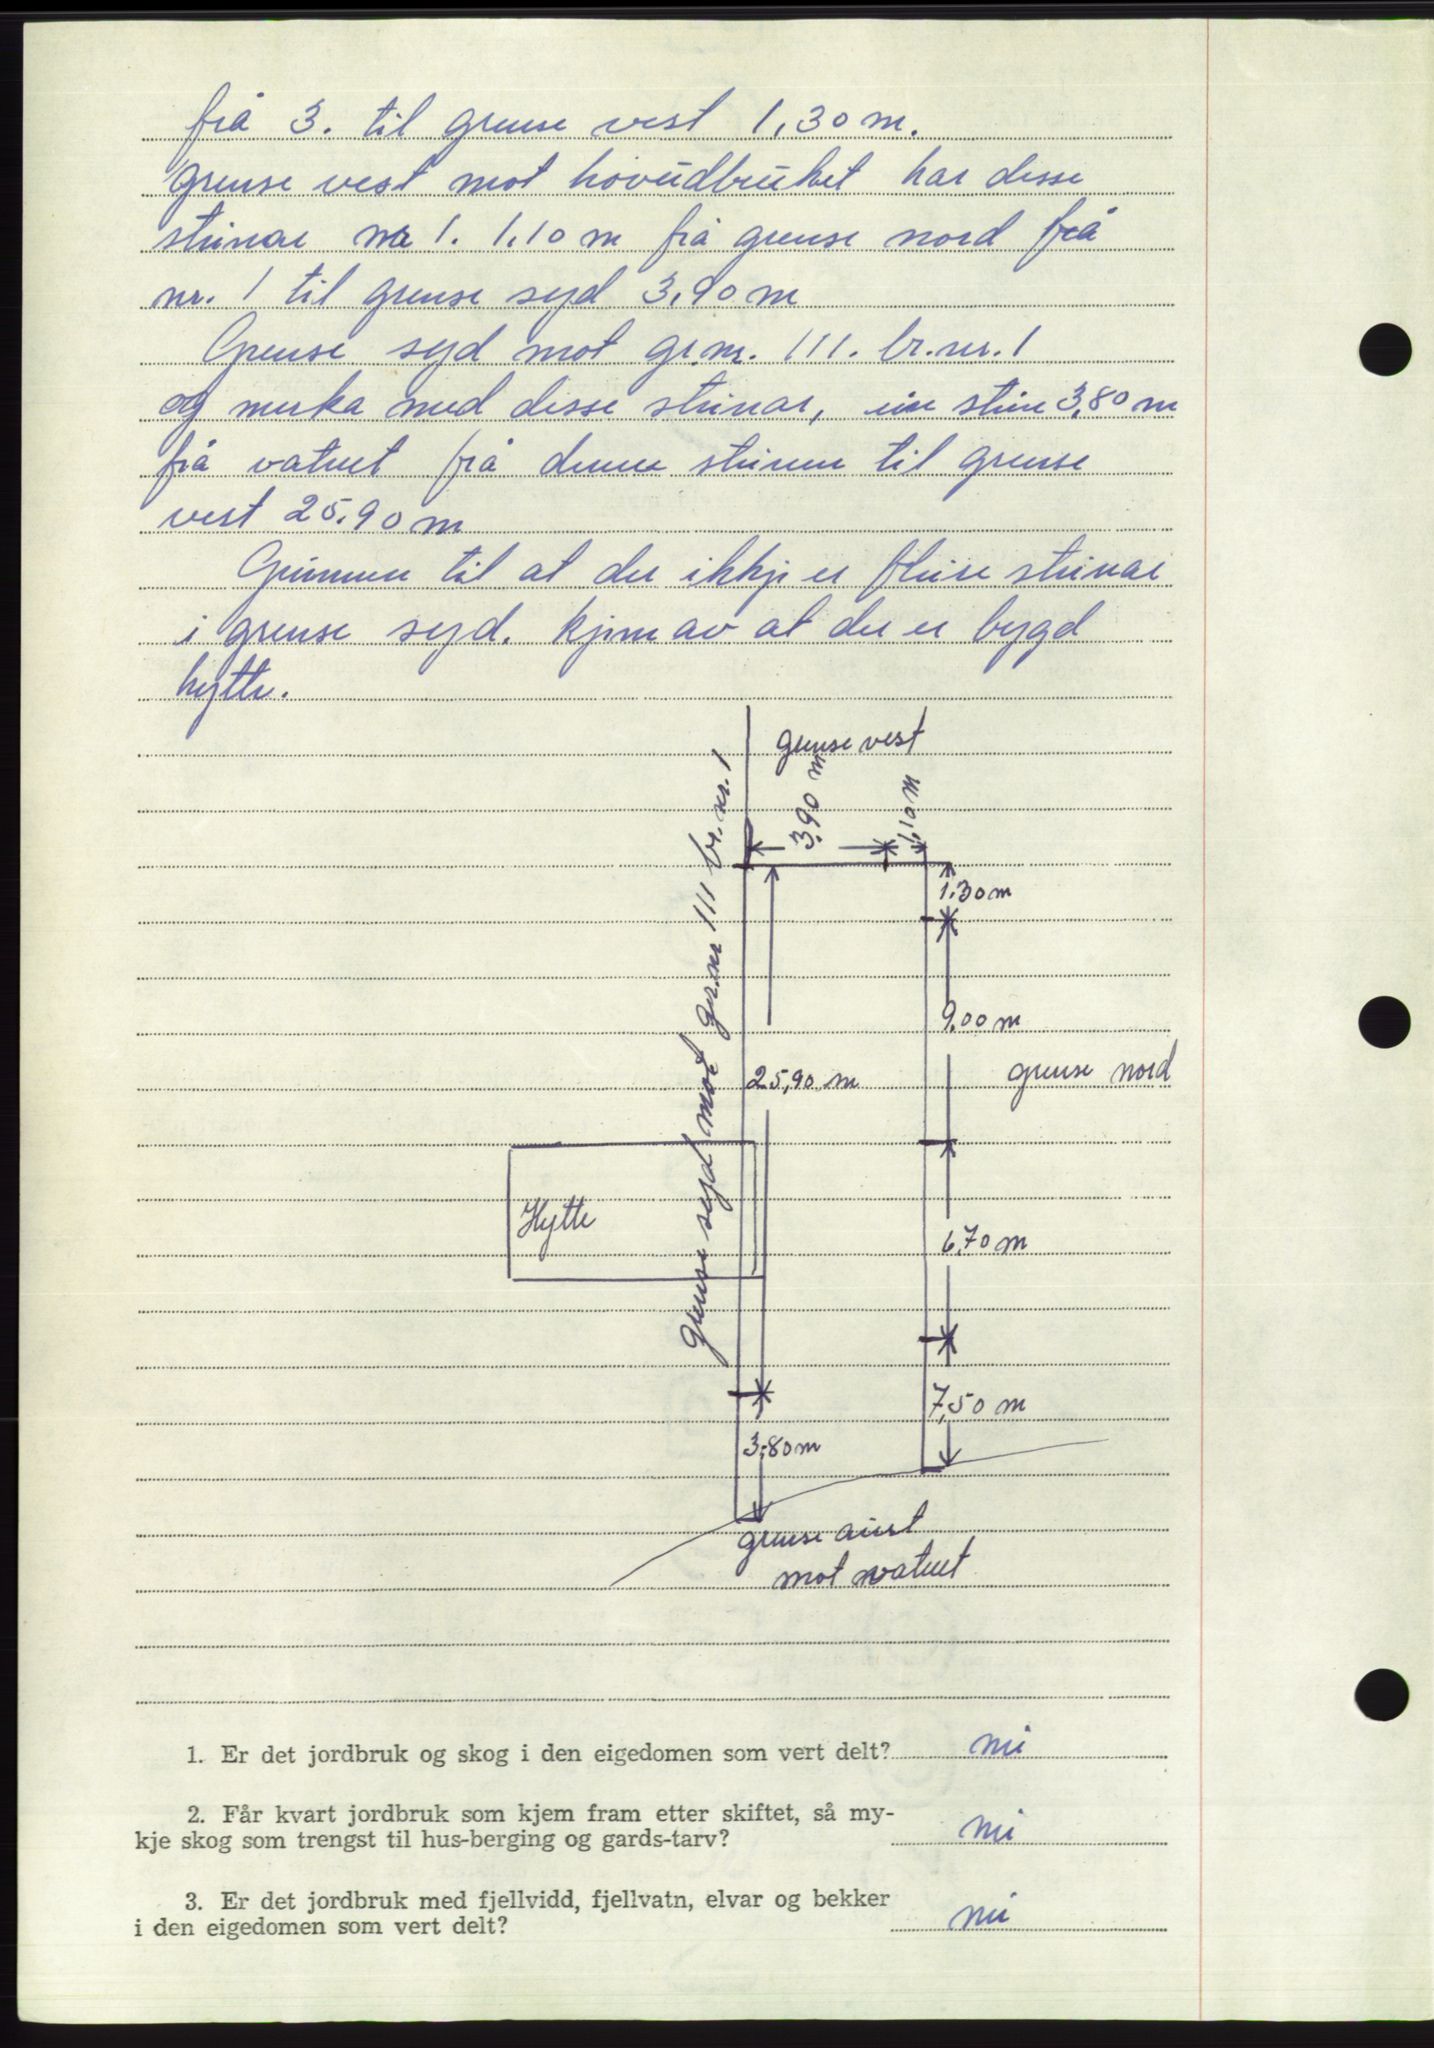 frå 3. til grense vest 1,30 m.
grense vest mot hovudbruket har desse
steinar nr 1. 1,10 m frå grense nord frå
nr. 1 til grense syd 3,90 m
Grense syd mot gr.nr. 111. br.nr. 1
og merka med desse steinar, ein stein 3,80 m
frå vatnet frå denne steinen til grense
vest 25,90 m
Grunnen til at der ikkje er fleire steinar
i grense syd. kjem av at der er bygd
hytte.
grense vest
3,90 m
1,10 m
1,30 m
9,00 m
grense nord
25,90 m
grense syd mot gr.nr 111 br.nr. 1
Hytte
6,70 m
7,50 m
3,80 m
grense aust
mot vatnet
1. Er det jordbruk og skog i den eigedomen som vert delt? nei
2. Får kvart jordbruk som kjem fram etter skiftet, så my-
kje skog som trengst til hus-berging og gards-tarv? nei
3. Er det jordbruk med fjellvidd, fjellvatn, elvar og bekker
i den eigedomen som vert delt? nei